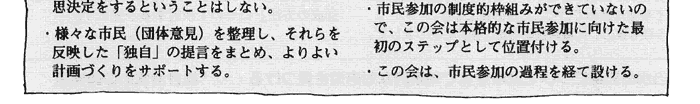 思決定をするということはしない。
・様々な市民（団体意見）を整理し、それらを
反映した「独自」の提言をまとめ、よりよい
計画づくりをサポートする。
・市民参加の制度的枠組みができていないの
で、この会は本格的な市民参加に向けた最
初のステップとして位置付ける。
・この会は、市民参加の過程を経て設ける。